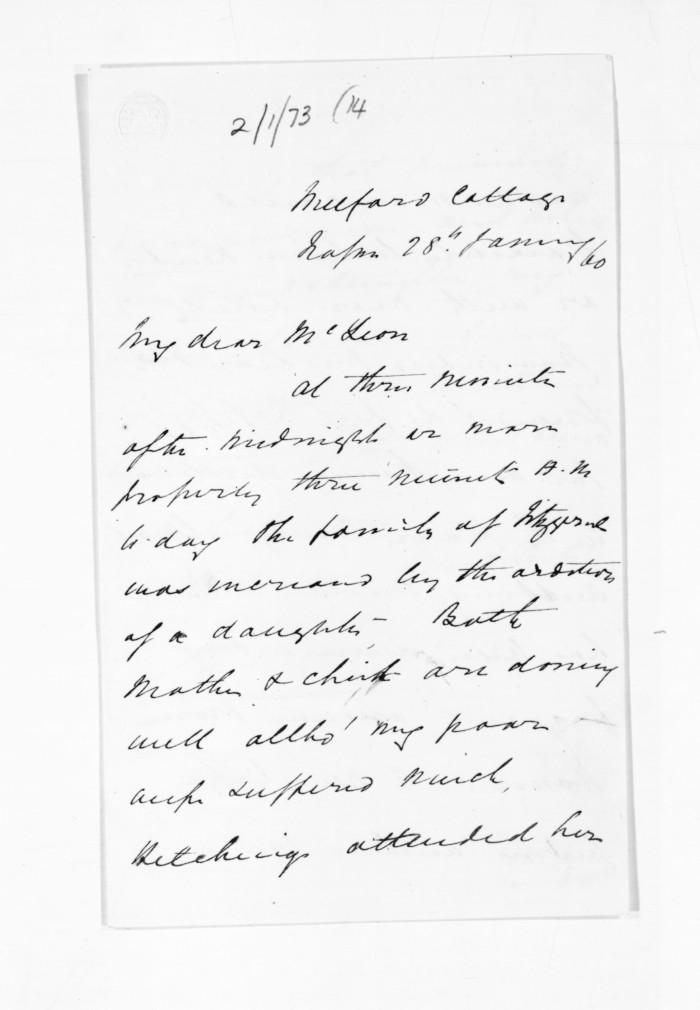 2/1/73 (14
Milford Cottage
Napier 28th January /60
My dear McLean
at three minutes
after midnight or more
properly three minutes A.M
to-day the family of Fitzgerald
was increased by the addition
of a daughter, Both
Mother & chick are doing
well altho' my poor
wife suffered much,
Hitchings attended her